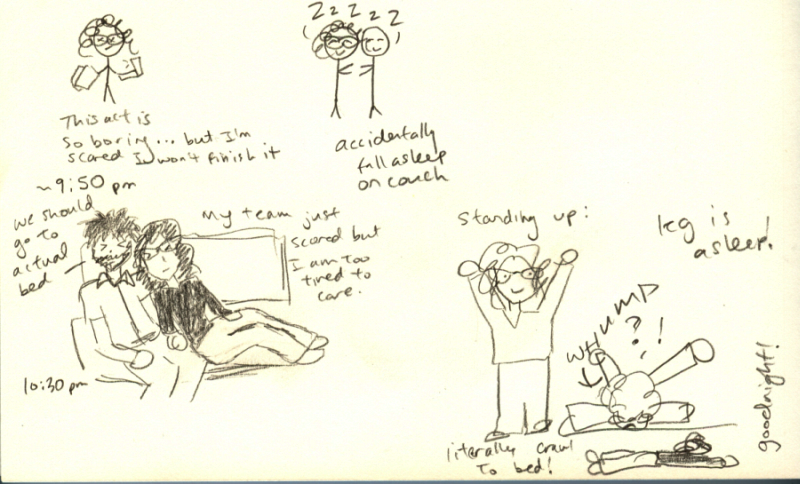 This act is
so boring... but I'm
scared I won't finish it
~9:50 pm
Z Z Z Z Z
accidentally
fall asleep
on couch
we should
go to
actual
bed
My team just
scored but
I am too
tired to
care.
10:30 pm
Standing up:
WHUMP
?!
literally crawl
to bed!
kg is
asleep!
goodnight!